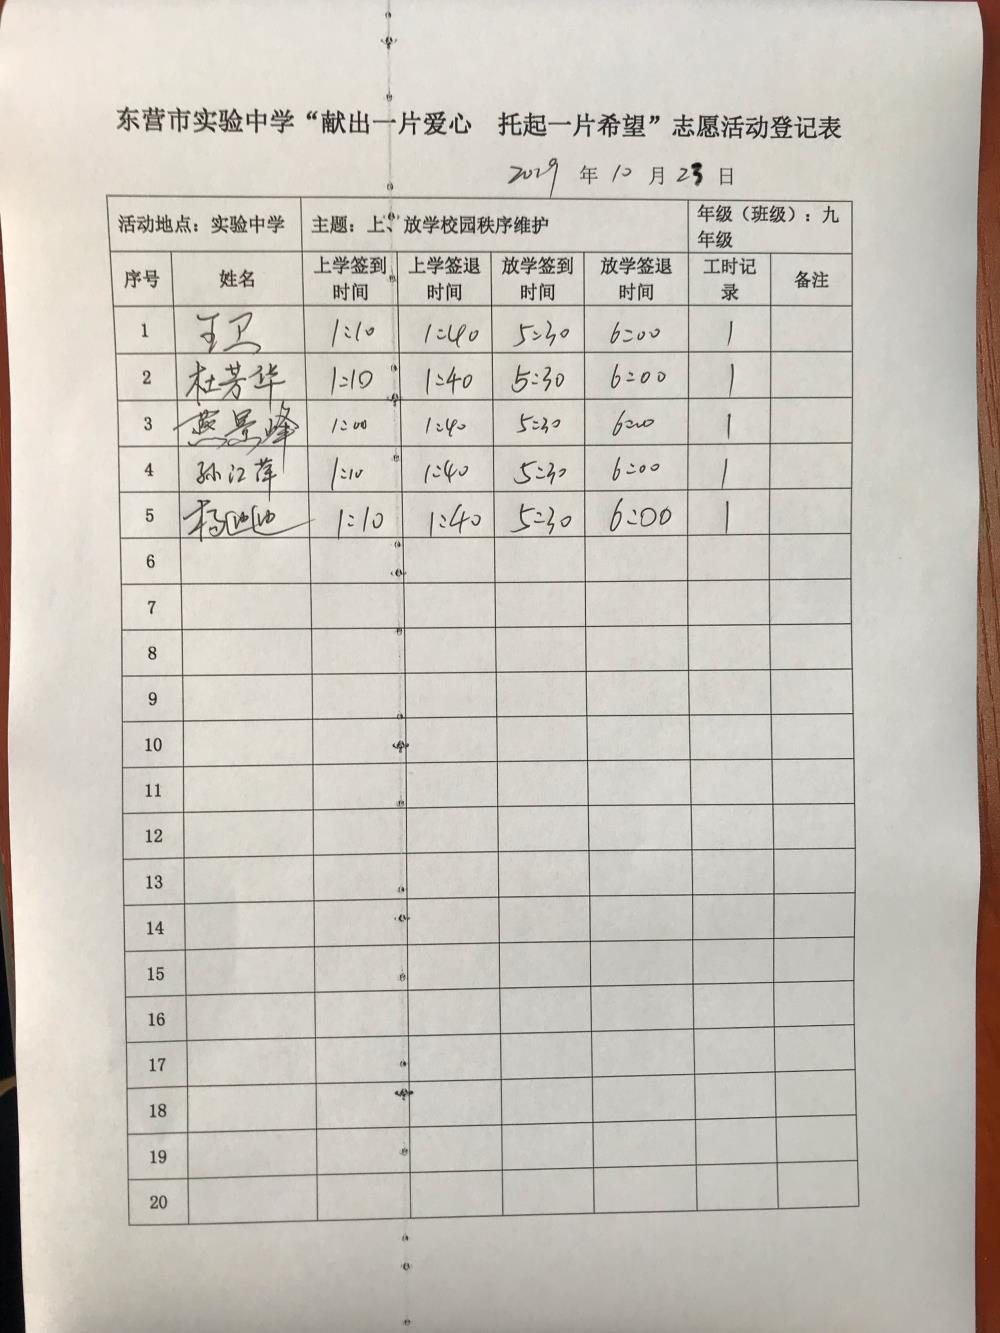 东营市实验中学“献出一片爱心 托起一片希望”志愿活动登记表
2019 年 10 月 23 日
活动地点：实验中学 主题：上、放学校园秩序维护 年级（班级）：九年级
序号 姓名 上学签到时间 上学签退时间 放学签到时间 放学签退时间 工时记录 备注
1 王卫 1:10 1:40 5:30 6:00 1
2 杜芳华 1:10 1:40 5:30 6:00 1
3 燕景峰 1:00 1:40 5:30 6:00 1
4 孙江萍 1:10 1:40 5:30 6:00 1
5 杨 1:10 1:40 5:30 6:00 1
6
7
8
9
10
11
12
13
14
15
16
17
18
19
20